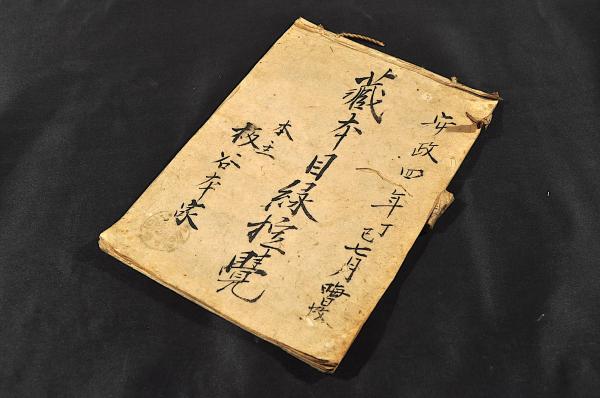 安政四年丁巳七月晦日
藏本目録控覺
本主
板谷本家